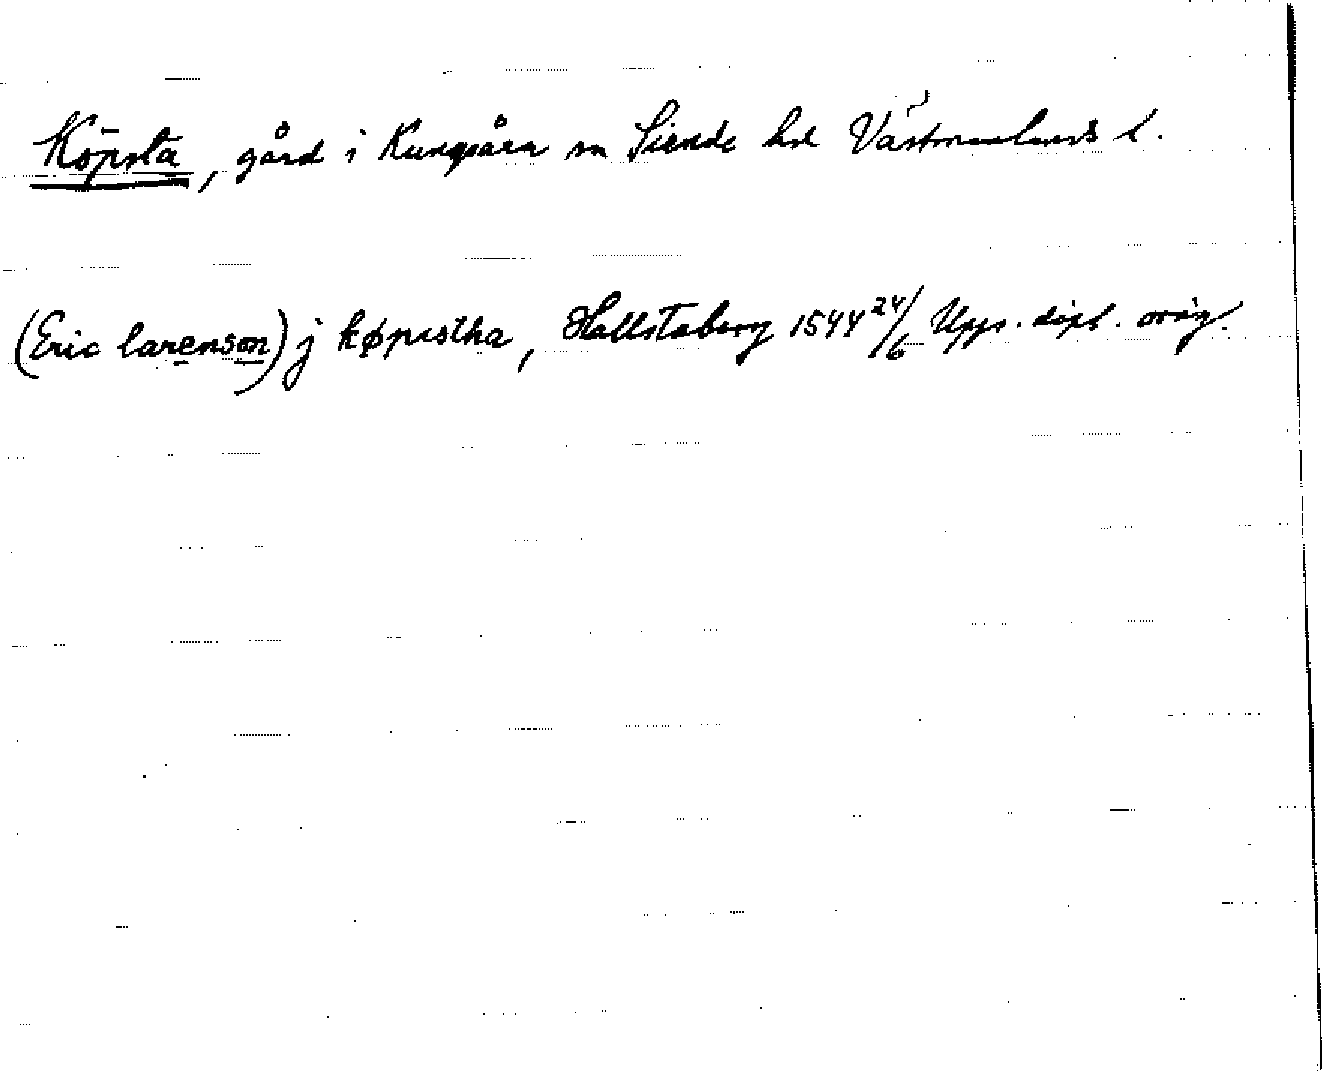 Köpsta, gård i Kungsåra sn Siende hd Västmanlands l.
(Eric larenson) j køpestha, Hallstaberg 1544 24/6 Upps. dipl. orig.